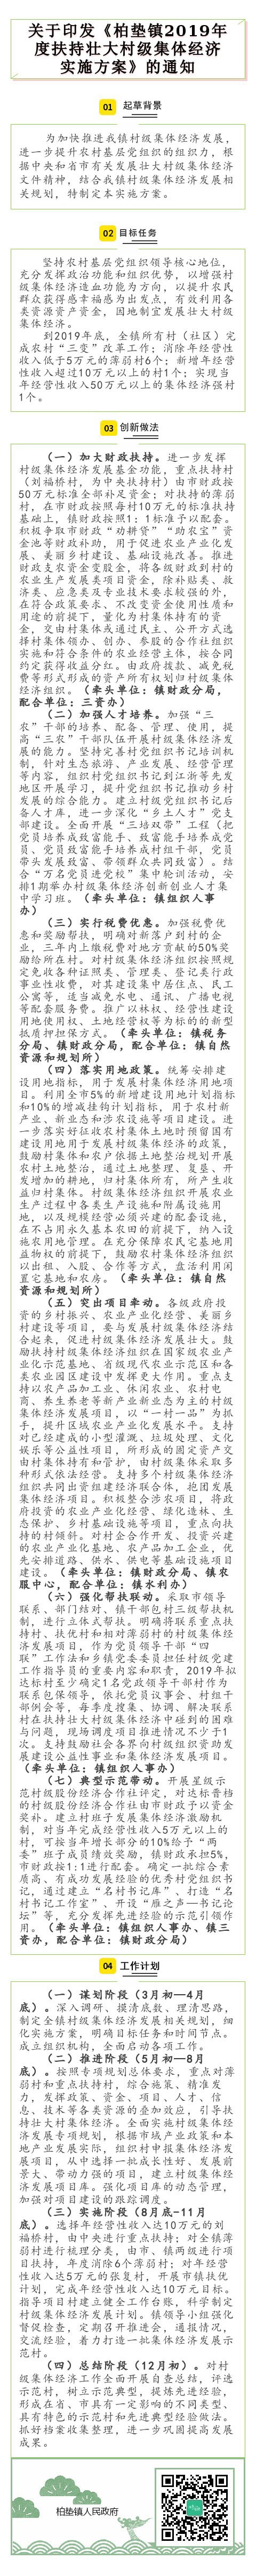 关于印发《柏垫镇2019年
度扶持壮大村级集体经济
实施方案》的通知
01 起草背景
为加快推进我镇村级集体经济发展,
进一步提升农村基层党组织的组织力,根
据中央和省市有关发展壮大村级集体经济
文件精神,结合我镇村级集体经济发展相
关规划,特制定本实施方案。
02 目标任务
坚持农村基层党组织领导核心地位,
充分发挥政治功能和组织优势,以增强村
级集体经济造血功能为方向,以提升农民
群众获得感幸福感为出发点,有效利用各
类资源资产资金,因地制宜发展壮大村级
集体经济。
到2019年底,全镇所有村(社区)完
成农村“三变”改革工作;消除年经营性
收入低于5万元的薄弱村6个;新增年经营
性收入超过10万元以上的村1个;实现当
年经营性收入50万元以上的集体经济强村
1个。
03 创新做法
(一)加大财政扶持。进一步发挥
村级集体经济发展基金功能,重点扶持村
(刘福桥村,为中央扶持村)由市财政按
50万元标准全部补足资金;对扶持的薄弱
村,在市财政按照每村10万元的标准扶持
基础上,镇财政按照1:1标准予以配套。
积极争取市财政“劝耕贷”“助农宝”资
金池等财政补助,用于促进农业产业化发
展、美丽乡村建设、基础设施改善。推进
财政支农资金变股金,将各级财政到村的
农业生产发展类项目资金,除补贴类、救
济类、应急类及专业技术要求较强的外,
在符合政策要求、不改变资金使用性质和
用途的前提下,量化为村集体持有的资
金,交由村集体或通过民主、公开方式选
择村集体领办、创办、参股的合作社组织
实施和符合条件的农业经营主体,按合同
约定获得收益分红。由政府拨款、减免税
费等形式形成的资产所有权划归村级集体
经济组织。(牵头单位:镇财政分局,
配合单位:三资办)
(二)加强人才培养。加强“三
农”干部的培养、配备、管理、使用,提
高“三农”干部队伍开展村级集体经济发
展的能力。坚持完善村党组织书记培训机
制,针对生态旅游、产业发展、经营管理
等内容,组织村党组织书记到江浙等先发
地区开展学习,提升党组织书记推动乡村
发展的综合能力。建立村级党组织书记后
备人才库,进一步深化“乡土人才”党支
部建设。全面开展“三培双带”工程(把
党员培养成致富能手、致富能手培养成党
员、党员致富能手培养成村组干部,党员
带头发展致富、带领群众共同致富)。结
合“万名党员进党校”集中轮训活动,安
排1期举办村级集体经济创新创业人才集
中学习班。(牵头单位:镇组织人事
办)
(三)实行税费优惠。加强税费优
惠和奖励帮扶,明确对新落户到村的企
业,三年内上缴税费对地方贡献的50%奖
励给所在村。对村级集体经济组织按照规
定免收各种证照类、管理类、登记类行政
事业性收费,对其建设集中居住点、民工
公寓等,适当减免水电、通讯、广播电视
等配套服务费。推广以林权、经营性建设
用地使用权、土地经营权等为标的的新型
抵质押担保方式。(牵头单位:镇税务
分局、镇财政分局,配合单位:镇自然
资源和规划所)
(四)落实用地政策。统筹安排建
设用地指标,用于发展村集体经济用地项
目。利用全市5%的新增建设用地计划指标
和10%的增减挂钩计划指标,用于农村新
产业、新业态和涉农设施等项目建设。进
一步落实好征收农村集体土地时预留国有
建设用地用于发展村级集体经济的政策,
鼓励村集体和农户依据土地整治规划开展
农村土地整治,通过土地整理、复垦、开
发增加的耕地,归村集体所有,所产生收
益归村集体。村级集体经济组织开展农业
生产过程中各类生产设施和附属设施用
地,以及规模经营必须兴建的配套设施,
在不占用永久基本农田的前提下,纳入设
施农用地管理。在充分保障农民宅基地用
益物权的前提下,鼓励农村集体经济组织
以出租、入股、合作等方式,盘活利用闲
置宅基地和农房。(牵头单位:镇自然
资源和规划所)
(五)突出项目牵动。各级政府投
资的乡村振兴、农业产业化经营、美丽乡
村建设等项目,要与发展村级集体经济结
合起来,促进村级集体经济发展壮大。鼓
励扶持村级集体经济组织在国家级农业产
业化示范基地、省级现代农业示范区和各
类农业园区建设中发挥更大作用。重点支
持以农产品加工业、休闲农业、农村电
商、养生养老等新产业新业态为主的村级
集体经济发展项目,以“一村一品”为抓
手,提升区域农业产业化发展水平。支持
对已经建成的小型灌溉、垃圾处理、文化
娱乐等公益性项目,所形成的固定资产交
由村集体持有和管护,由村级集体采取多
种形式依法经营。支持多个村级集体经济
组织共同出资组建经济联合体,抱团发展
集体经济项目。积极整合涉农项目,将政
府投资的农业产业化经营、绿化造林、生
态保护、乡村基础设施等项目,重点向扶
持的村倾斜。对村企合作开发、投资兴建
的农业产业化基地、农产品加工企业,优
先安排道路、供水、供电等基础设施项目
建设。(牵头单位:镇财政分局、镇农
服中心,配合单位:镇水利办)
(六)强化帮扶联动。采取市领导
联系、部门结对、镇干部包村三级帮扶机
制,进行立体式帮扶。明确将联系重点扶
持村、扶优村和相对薄弱村的村级集体经
济发展项目,作为党员领导干部“四
联”工作法和乡镇党委委员担任村级党建
工作指导员的重要内容和职责,2019年拟
达标村至少确定1名党政领导干部村作为
联系包保领导,依托党员议事会、村组干
部例会等,每季度搜集、协调、解决联系
村在扶持壮大村级集体经济中碰到的困难
与问题,现场调度项目推进情况不少于1
次。支持鼓励社会各界向村级组织资助发
展建设公益性事业和集体经济发展项目。
(牵头单位:镇组织人事办)
(七)典型示范带动。开展星级示
范村级股份经济合作社评定,对达标晋档
的村级股份经济合作社由市财政予以资金
奖补。建立村班子发展集体经济激励机
制,对当年完成经营性收入5万元以上的
村,可按当年增长部分的10%给予“两
委”班子成员绩效奖励,镇财政承担5%,
市财政按1:1进行配套。确定一批综合素
质高、有成功发展经验的优秀村党组织书
记,通过建立“名村书记库”、打造“名
村书记工作室”、开设“雁之声—书记论
坛”等,充分发挥先进经验的示范引领作
用。(牵头单位:镇组织人事办、镇三
资办,配合单位:镇财政分局)
04 工作计划
(一)谋划阶段(3月初—4月
底)。深入调研、摸清底数、理清思路,
制定全镇村级集体经济发展相关规划,细
化实施方案,明确目标任务和时间节点。
成立组织机构,全面启动各项工作。
(二)推进阶段(5月初—8月
底)。按照专项规划总体要求,重点对薄
弱村和重点扶持村,综合施策、精准发
力,发挥政策、资金、项目、人才、信
息、技术等各类资源的叠加效应,引导扶
持壮大村集体经济。全面实施村级集体经
济发展专项规划,根据市域产业政策和本
地产业发展实际,组织村申报集体经济发
展项目,从中选择一批成长性好、发展前
景大、带动力强的项目,建立村级集体经
济发展项目库。强化项目库的动态管理,
加强对项目建设的跟踪调度。
(三)实施阶段(8月底-11月
底)。选择年经营性收入达10万元的刘
福桥村,由中央进行重点扶持;对全镇薄
弱村进行梳理分类,由市、镇两级进行项
目扶持,年度消除6个薄弱村;对年经营
性收入达5万元的张复村,开展市镇扶优
计划,完成年经营性收入达10万元目标。
指导项目村建立健全工作台账,科学制定
村级集体经济发展计划。镇领导小组强化
督促检查,定期召开推进会,通报情况,
交流经验,着力打造一批集体经济发展示
范村。
(四)总结阶段(12月初)。对村
级集体经济工作全面开展自查总结,评选
示范村,树立示范典型,提炼先进经验,
形成在省、市具有一定影响的不同类型、
具有特色的示范村和先进典型经验做法。
抓好档案收集整理,进一步巩固提高发展
成果。
柏垫镇人民政府